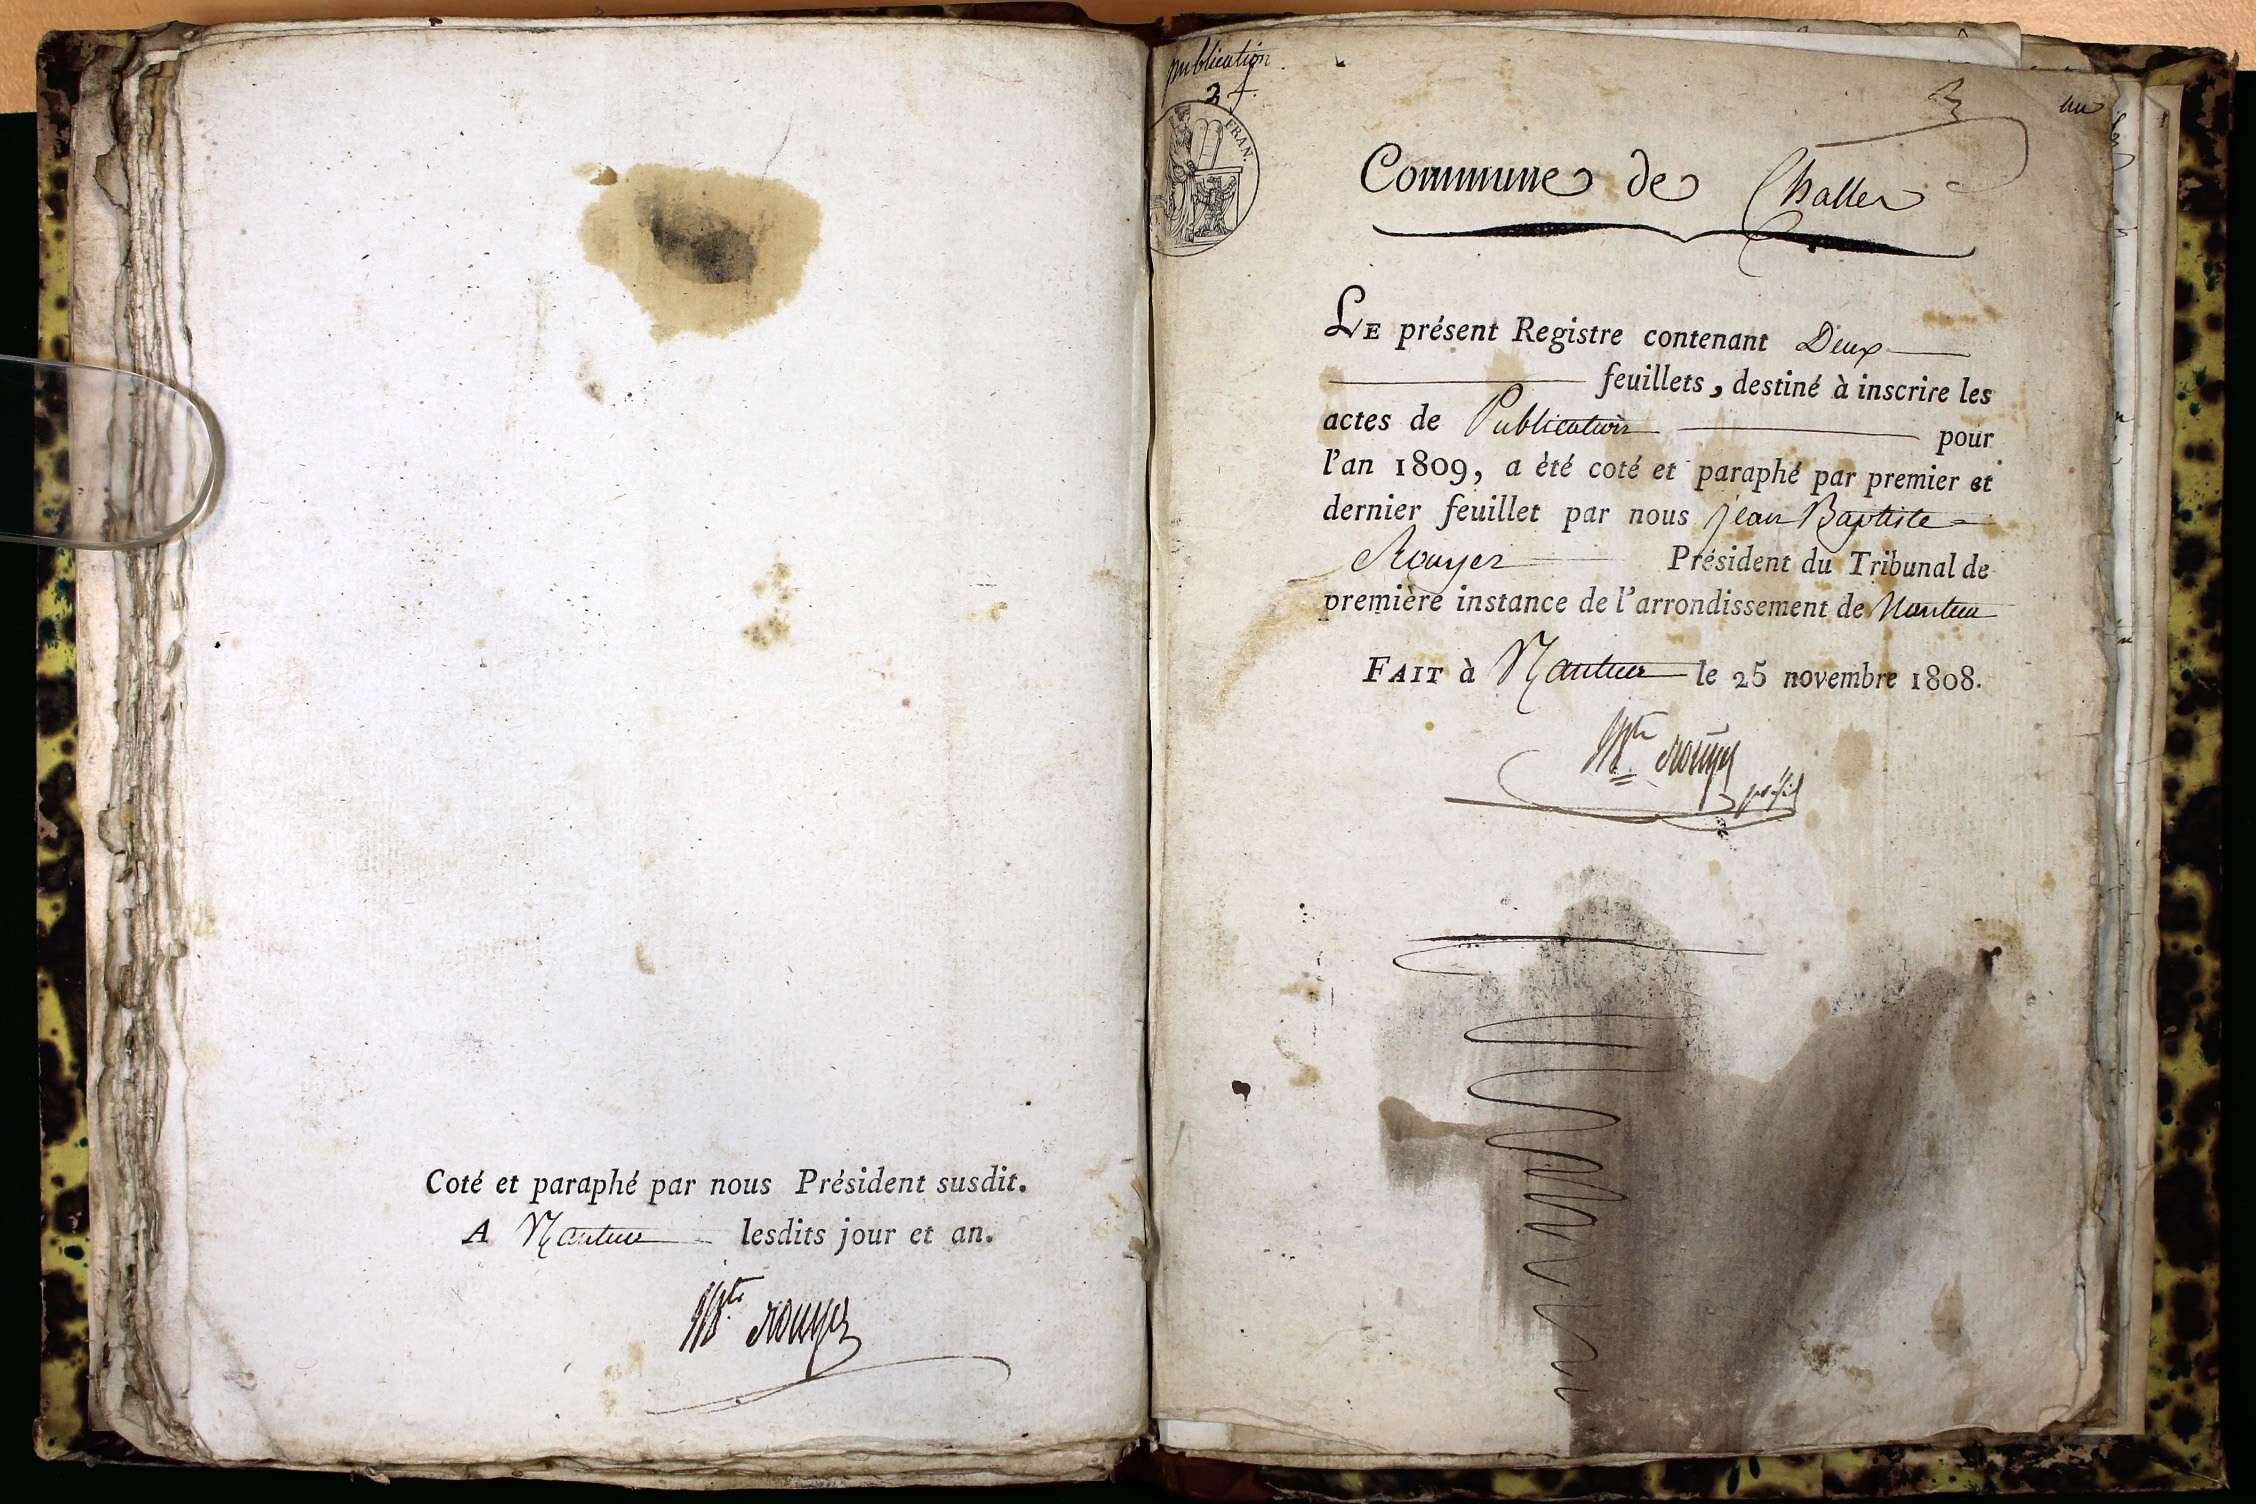 Coté et paraphé par nous Président susdit.
A Nantua lesdits jour et an.
JBte Rouyer
publication
2 f.
un
FRAN.
Commune de Challex
LE présent Registre contenant Deux
feuillets, destiné à inscrire les
actes de Publication pour
l'an 1809, a été coté et paraphé par premier et
dernier feuillet par nous Jean Baptiste
Rouyer Président du Tribunal de
première instance de l'arrondissement de Nantua
FAIT à Nantua le 25 novembre 1808.
JBte Rouyer